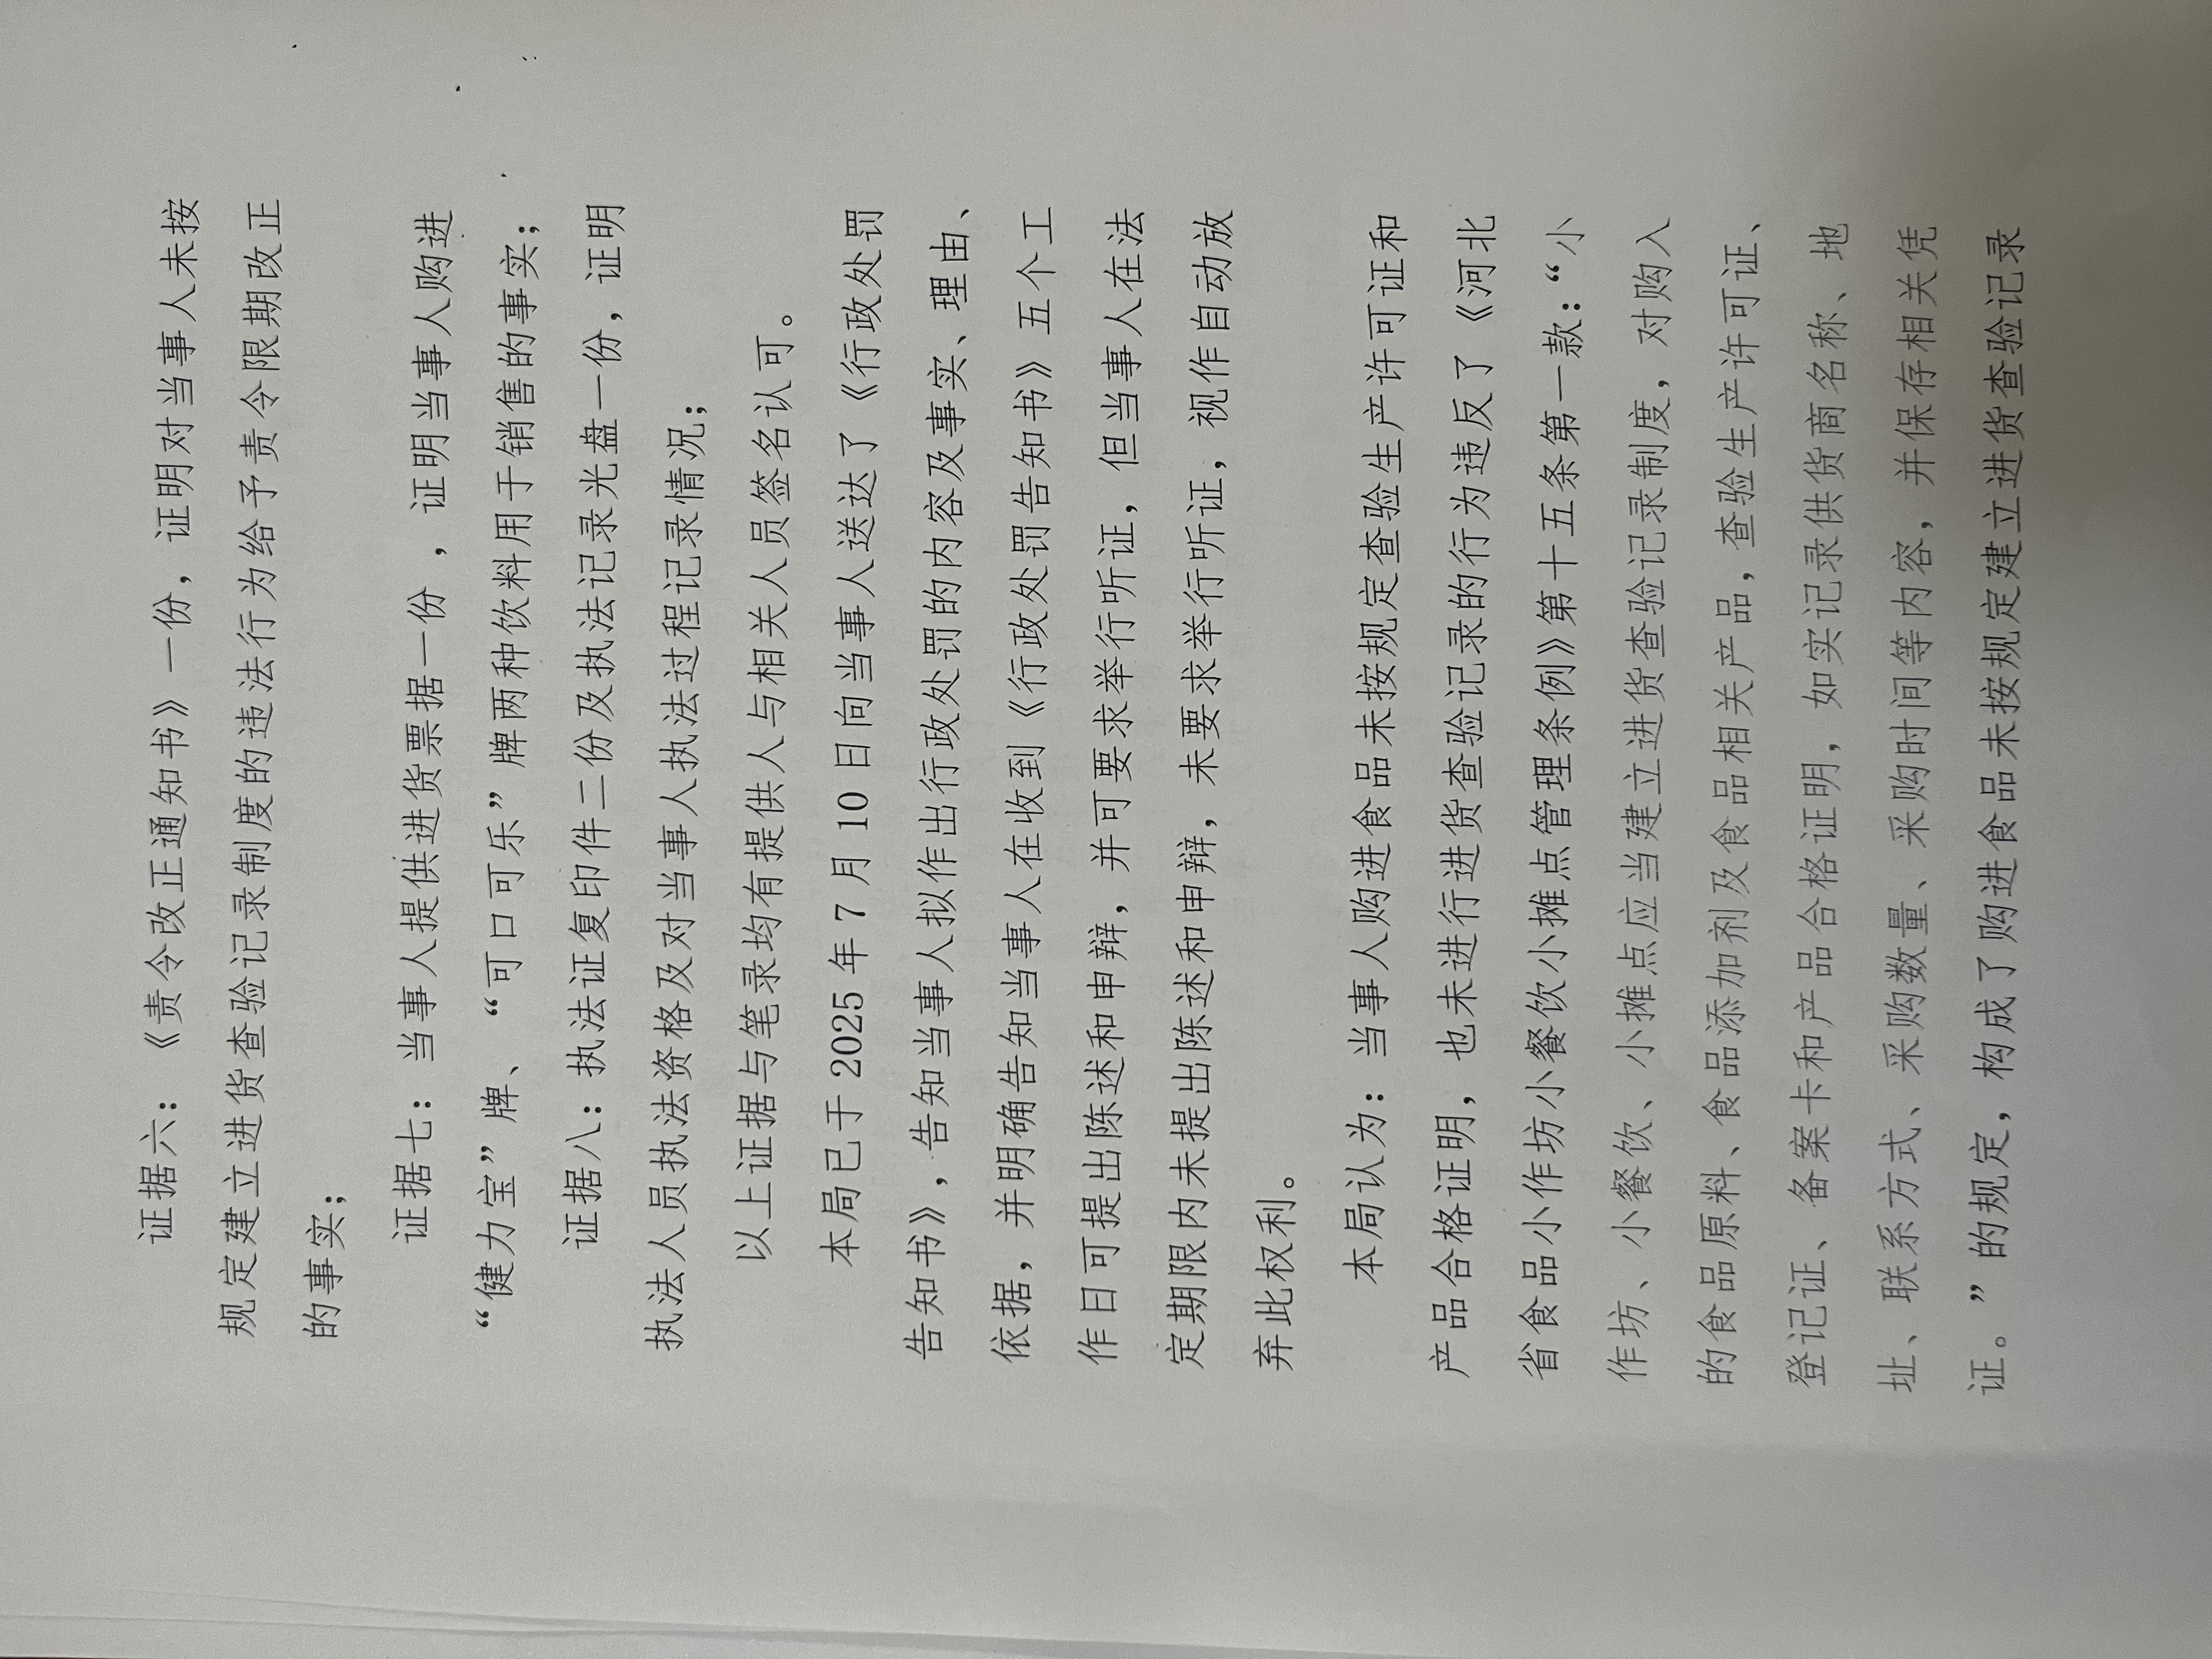 证据六：《责令改正通知书》一份，证明对当事人未按
规定建立进货查验记录制度的违法行为给予责令限期改正
的事实；
证据七：当事人提供进货票据一份 ，证明当事人购进
“健力宝”牌、“可口可乐”牌两种饮料用于销售的事实；
证据八：执法证复印件二份及执法记录光盘一份，证明
执法人员执法资格及对当事人执法过程记录情况；
以上证据与笔录均有提供人与相关人员签名认可。
本局已于 2025 年 7 月 10 日向当事人送达了《行政处罚
告知书》，告知当事人拟作出行政处罚的内容及事实、理由、
依据，并明确告知当事人在收到《行政处罚告知书》五个工
作日可提出陈述和申辩，并可要求举行听证，但当事人在法
定期限内未提出陈述和申辩，未要求举行听证，视作自动放
弃此权利。
本局认为：当事人购进食品未按规定查验生产许可证和
产品合格证明，也未进行进货查验记录的行为违反了《河北
省食品小作坊小餐饮小摊点管理条例》第十五条第一款：“小
作坊、小餐饮、小摊点应当建立进货查验记录制度，对购入
的食品原料、食品添加剂及食品相关产品，查验生产许可证、
登记证、备案卡和产品合格证明，如实记录供货商名称、地
址、联系方式、采购数量、采购时间等内容，并保存相关凭
证。”的规定，构成了购进食品未按规定建立进货查验记录